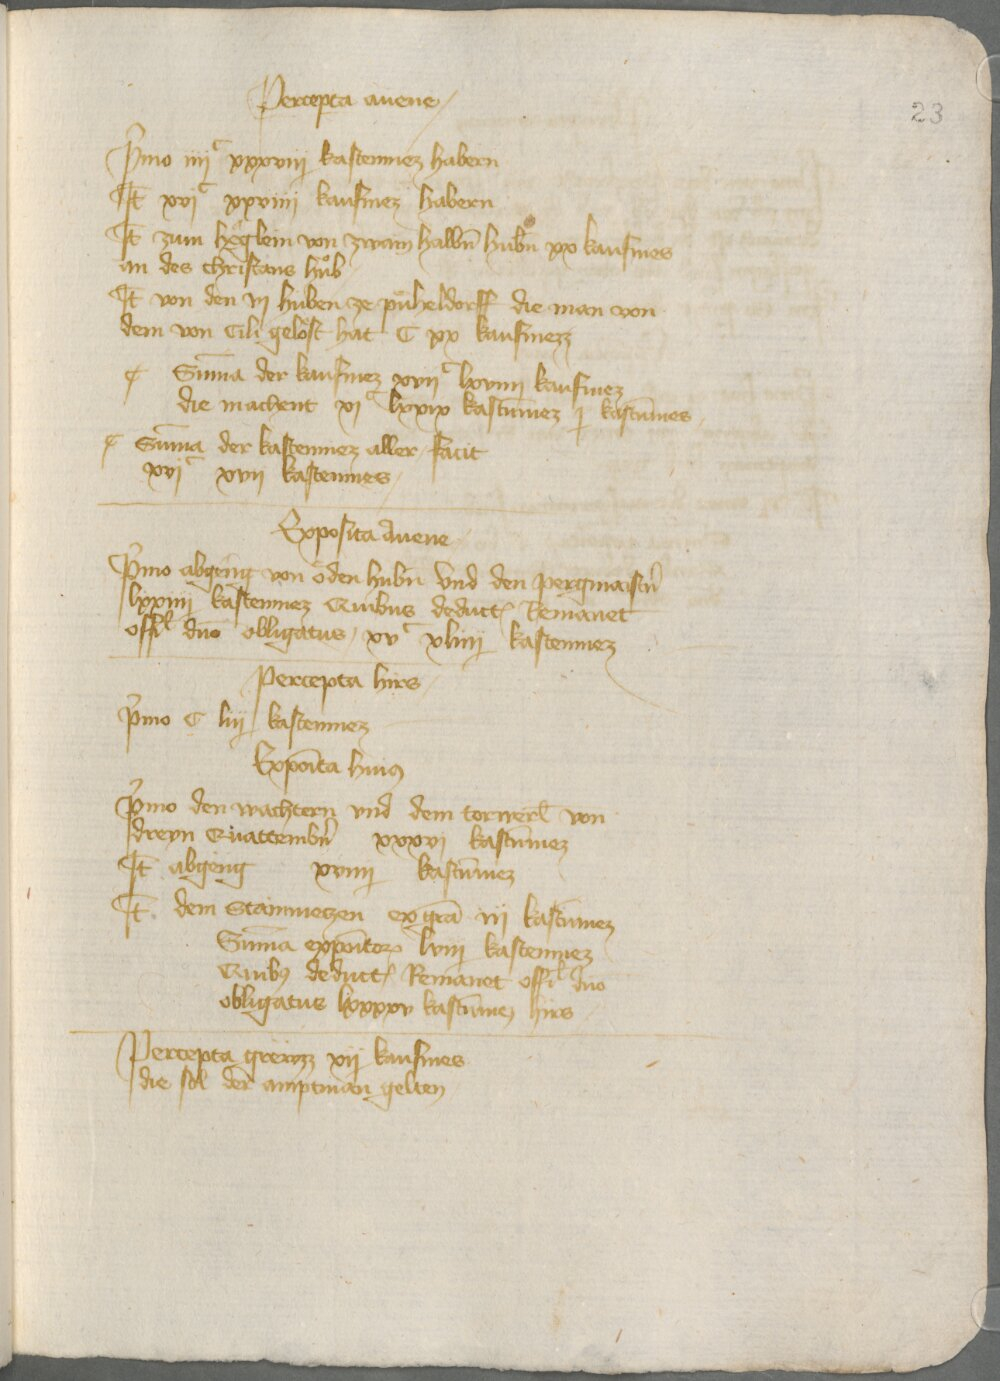 Percepta auene
23
Pmo iiijc xxxviij kastenmez habern
It xvjc xxviiij kaufmez habern
It zum heglein von zwain halbn hubn xx kaufmes
an des christans hůb
It von den vj huben ze půheldorff die man von
dem von Cili gelost hat C xx kaufmezz
Suma der kaufmez xvijc lxviiij kaufmez
die machent xjc lxxix kastmez j kastmes
Suma der kastenmez aller facit
xvjc xvij kastenmes
Exposita Auene
Pmo abgeng von öden hubn vnd den pergmaistn
lxxiiij kastenmez Quibus deduct Remanet
offil dno obligatus xvc xliiij kastenmez
Percepta hirs
Pmo C liij kastenmez
Expoita huius
Pmo den wachtern vnd dem torwertl von
dreyn Quattembn xxxvj kastmez
It abgeng xviiij kastmez
It dem Stainmetzen ex gra iij kastmez
Suma expoitor lviij kastenmez
Quibus deduct Remanet offil dno
obligatus lxxxxv kastmez hirs
Percepta greyzz xij kaufmes
die sol der amptman gelten